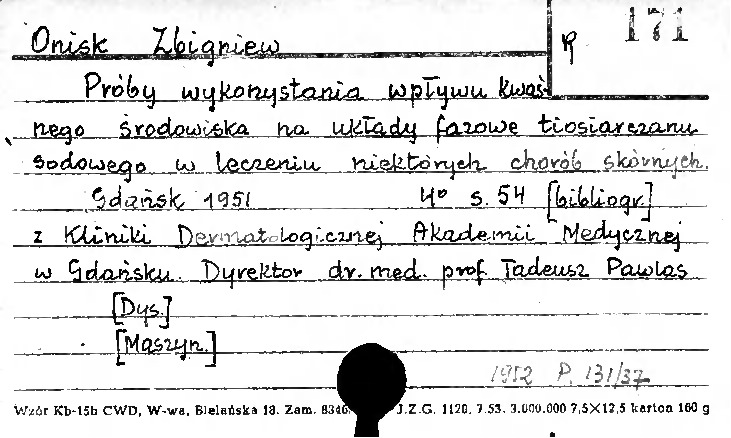 R 171
Onisk Zbigniew
Próby wykorzystania wpływu kwaś-
nego środowiska na układy fazowe tiosiarczanu
sodowego w leczeniu niektórych chorób skórnych.
Gdańsk 1951 4° s. 54 [bibliogr.]
z Kliniki Dermatologicznej Akademii Medycznej
w Gdańsku. Dyrektor dr. med. prof. Tadeusz Pawlas
[Dys.]
[Maszyn.]
1952 P. 131/37
Wzór Kb-15b CWD, W-wa, Bielańska 18. Zam. 8346 J.Z.G. 1120. 7.53. 3.000.000 7,5×12,5 karton 160 g